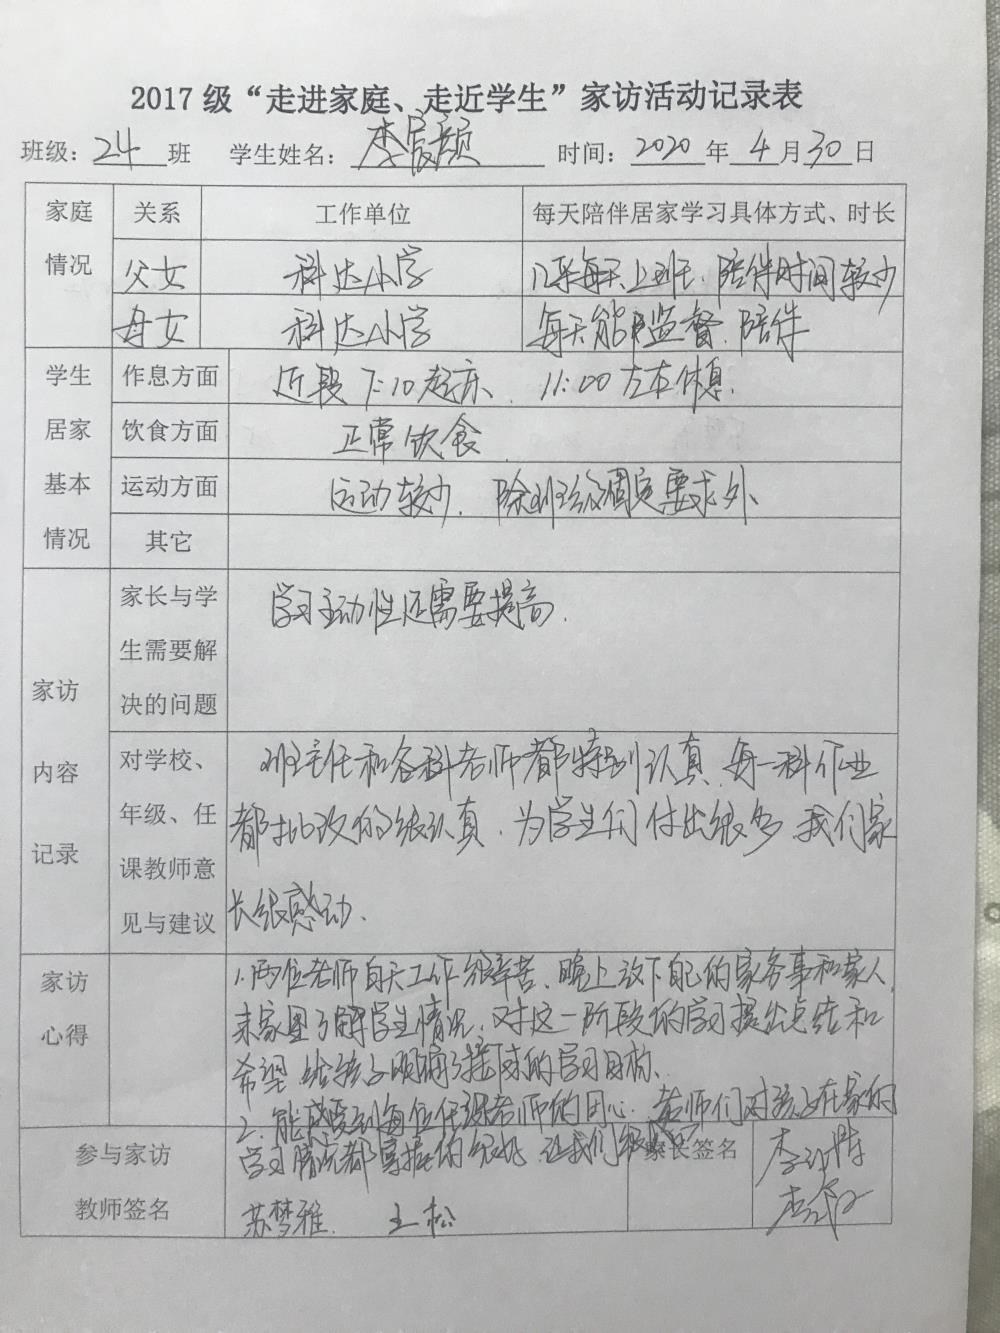 2017 级“走进家庭、走近学生”家访活动记录表
班级：24 班 学生姓名：李 颜 时间：2020 年 4 月 30 日
家庭情况 关系 工作单位 每天陪伴居家学习具体方式、时长
父女 科达小学 每天上班、陪伴时间较少
母女 科达小学 每天能 监督、陪伴
学生居家基本情况 作息方面 近段 7:10起床、11:00左右休息.
饮食方面 正常饮食
运动方面 运动较少. 除班级固定要求外
其它
家访内容记录 家长与学生需要解决的问题 学习主动性还需要提高.
对学校、年级、任课教师意见与建议 班主任和各科老师都特别认真、每一科作业
都批改的很认真、为学生们付出很多、我们家
长很感动.
家访心得 1.两位老师白天工作很辛苦、晚上放下自己的家务事和家人
来家里了解学生情况、对这一阶段的学习提出总结和
希望 给孩子明确了接下来的学习目标、
2.能感受到每位任课老师的用心、老师们对孩子在家的
学习情况都掌握的很好、让我们很
参与家访教师签名 苏梦雅. 王松 家长签名 李